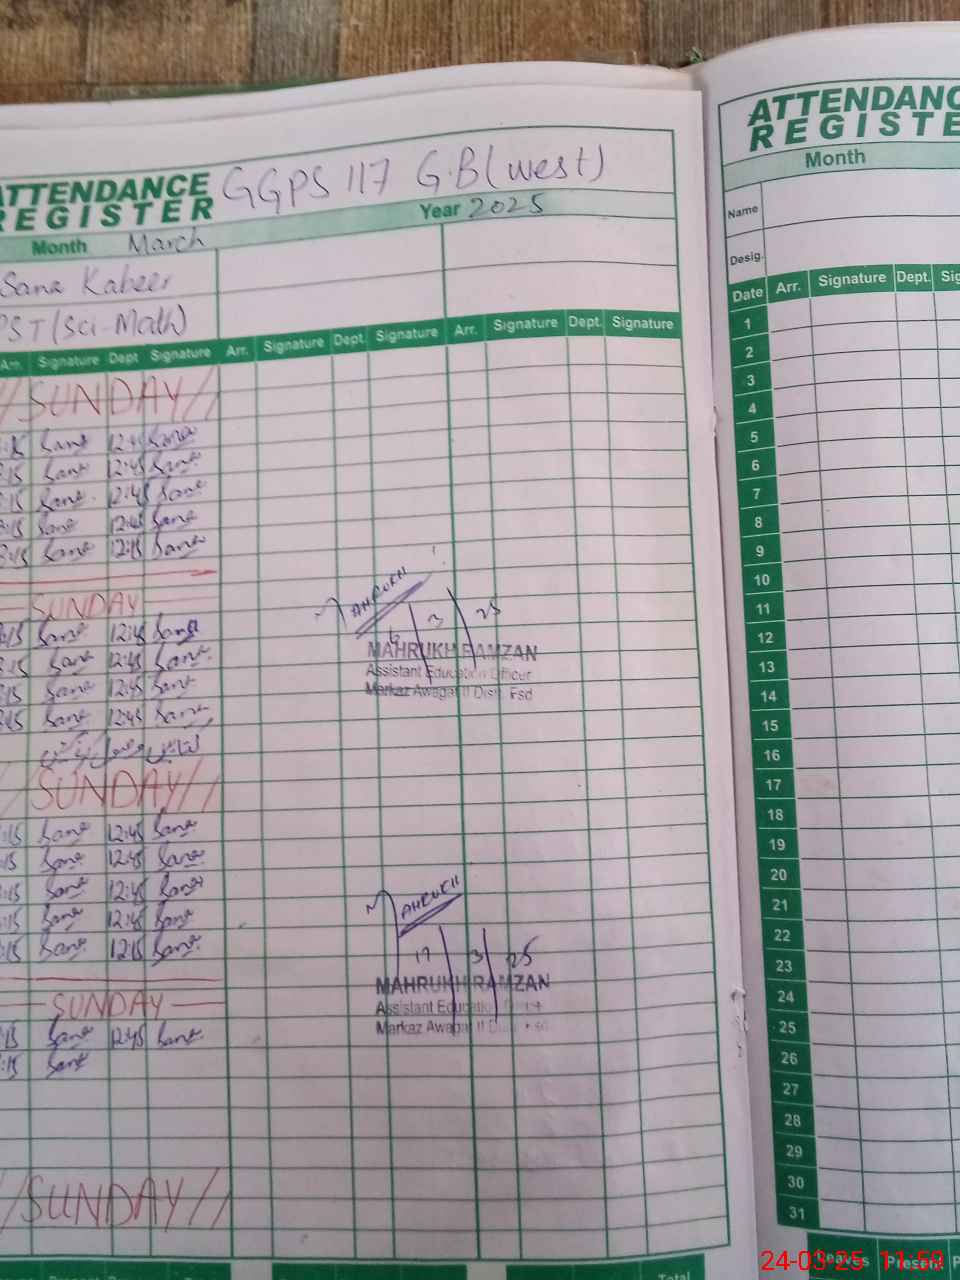 ATTENDANCE REGISTER
GGPS 117 G.B (west)
Month March
Year 2025
Sana Kabeer
PST (Sci-Math)
Arr. Signature Dept Signature Arr. Signature Dept. Signature Arr. Signature Dept. Signature
SUNDAY
:15 Sana 12:45 Sana
:15 Sana 12:45 Sana
:15 Sana 12:45 Sana
:15 Sana 12:45 Sana
8:15 Sana 12:15 Sana
SUNDAY
:15 Sana 12:45 Sana
:15 Sana 12:45 Sana
:15 Sana 12:45 Sana
:15 Sana 12:45 Sana
SUNDAY
:15 Sana 12:45 Sana
:15 Sana 12:45 Sana
:15 Sana 12:45 Sana
:15 Sana 12:45 Sana
:15 Sana 12:15 Sana
SUNDAY
:15 Sana 12:45 Sana
:15 Sana
SUNDAY
MAHRUKH
3 25
MAHRUKH RAMZAN
Assistant Education Officer
Markaz Awagat II Distt. Fsd
MAHRUKH
17 3 25
MAHRUKH RAMZAN
Assistant Education
Markaz Awagat II
Total
ATTENDANC
REGISTE
Month
Name
Desig.
Date Arr. Signature Dept. Sig
1
2
3
4
5
6
7
8
9
10
11
12
13
14
15
16
17
18
19
20
21
22
23
24
25
26
27
28
29
30
31
Leaves Present P
24-03-25 11:59